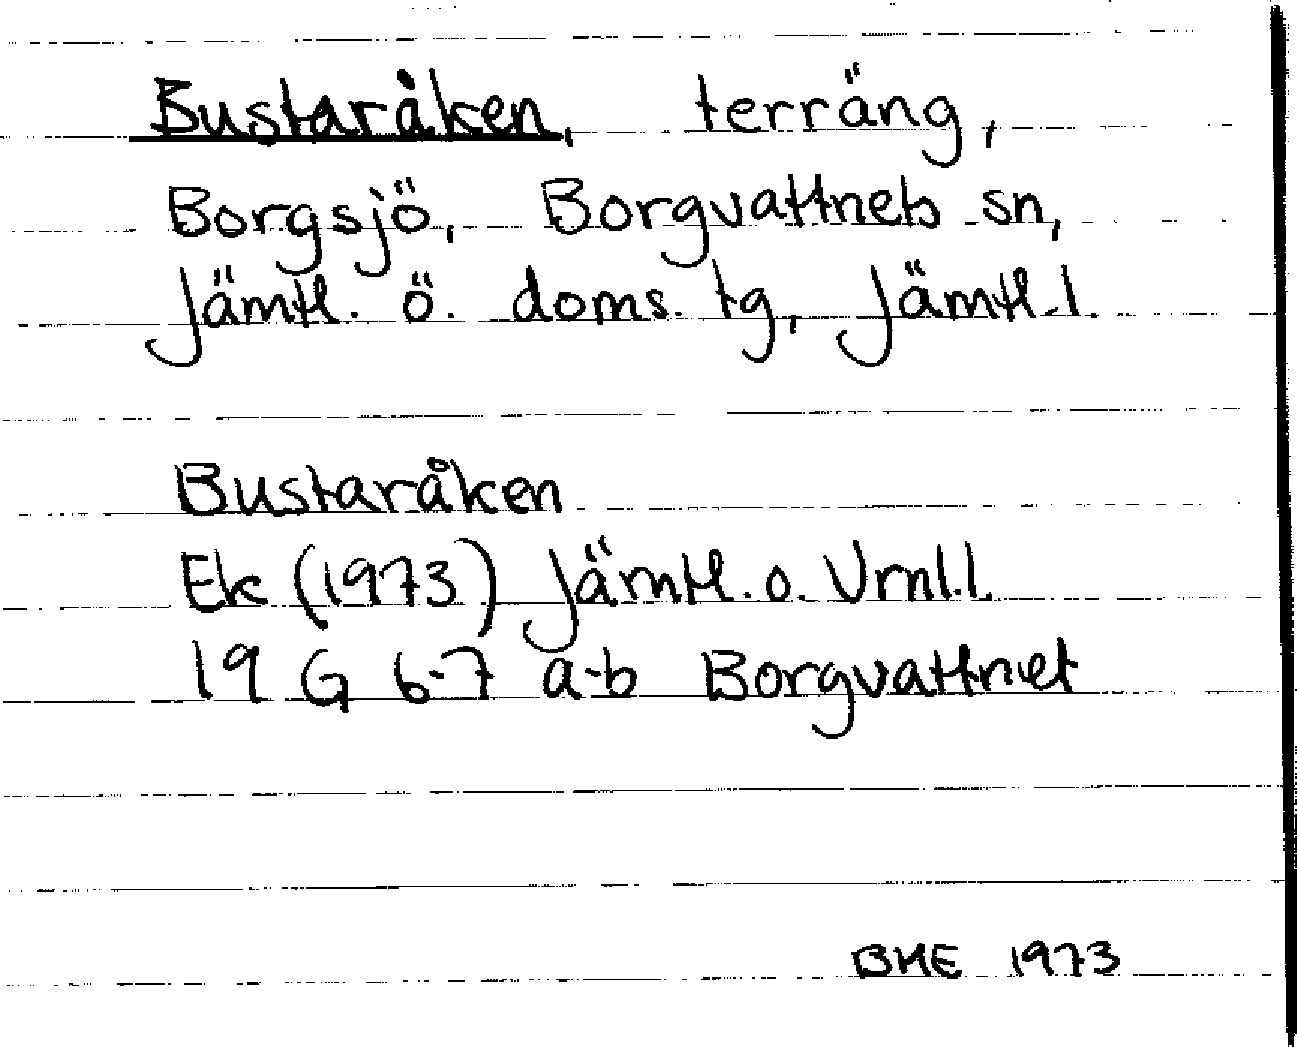 Bustaråken, terräng,
Borgsjö, Borgvattnets sn,
Jämtl. ö. doms. tg, Jämtl. l.
Bustaråken
Ek (1973) Jämtl. o. Vrnl. l.
19 G 6-7 a-b Borgvattnet
BME 1973